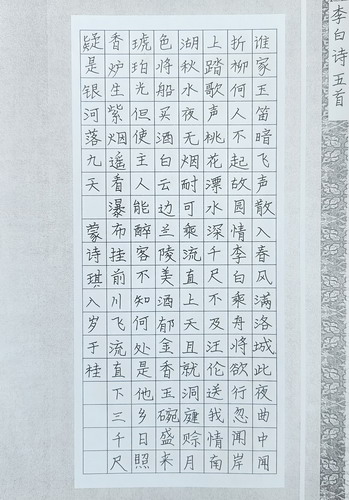 李白诗五首
谁家玉笛暗飞声散入春风满洛城此夜曲中闻
折柳何人不起故园情李白乘舟将欲行忽闻岸
上踏歌声桃花潭水深千尺不及汪伦送我情南
湖秋水夜无烟耐可乘流直上天且就洞庭赊月
色将船买酒白云边兰陵美酒郁金香玉碗盛来
琥珀光但使主人能醉客不知何处是他乡日照
香炉生紫烟遥看瀑布挂前川飞流直下三千尺
疑是银河落九天 蒙诗琪八岁于桂